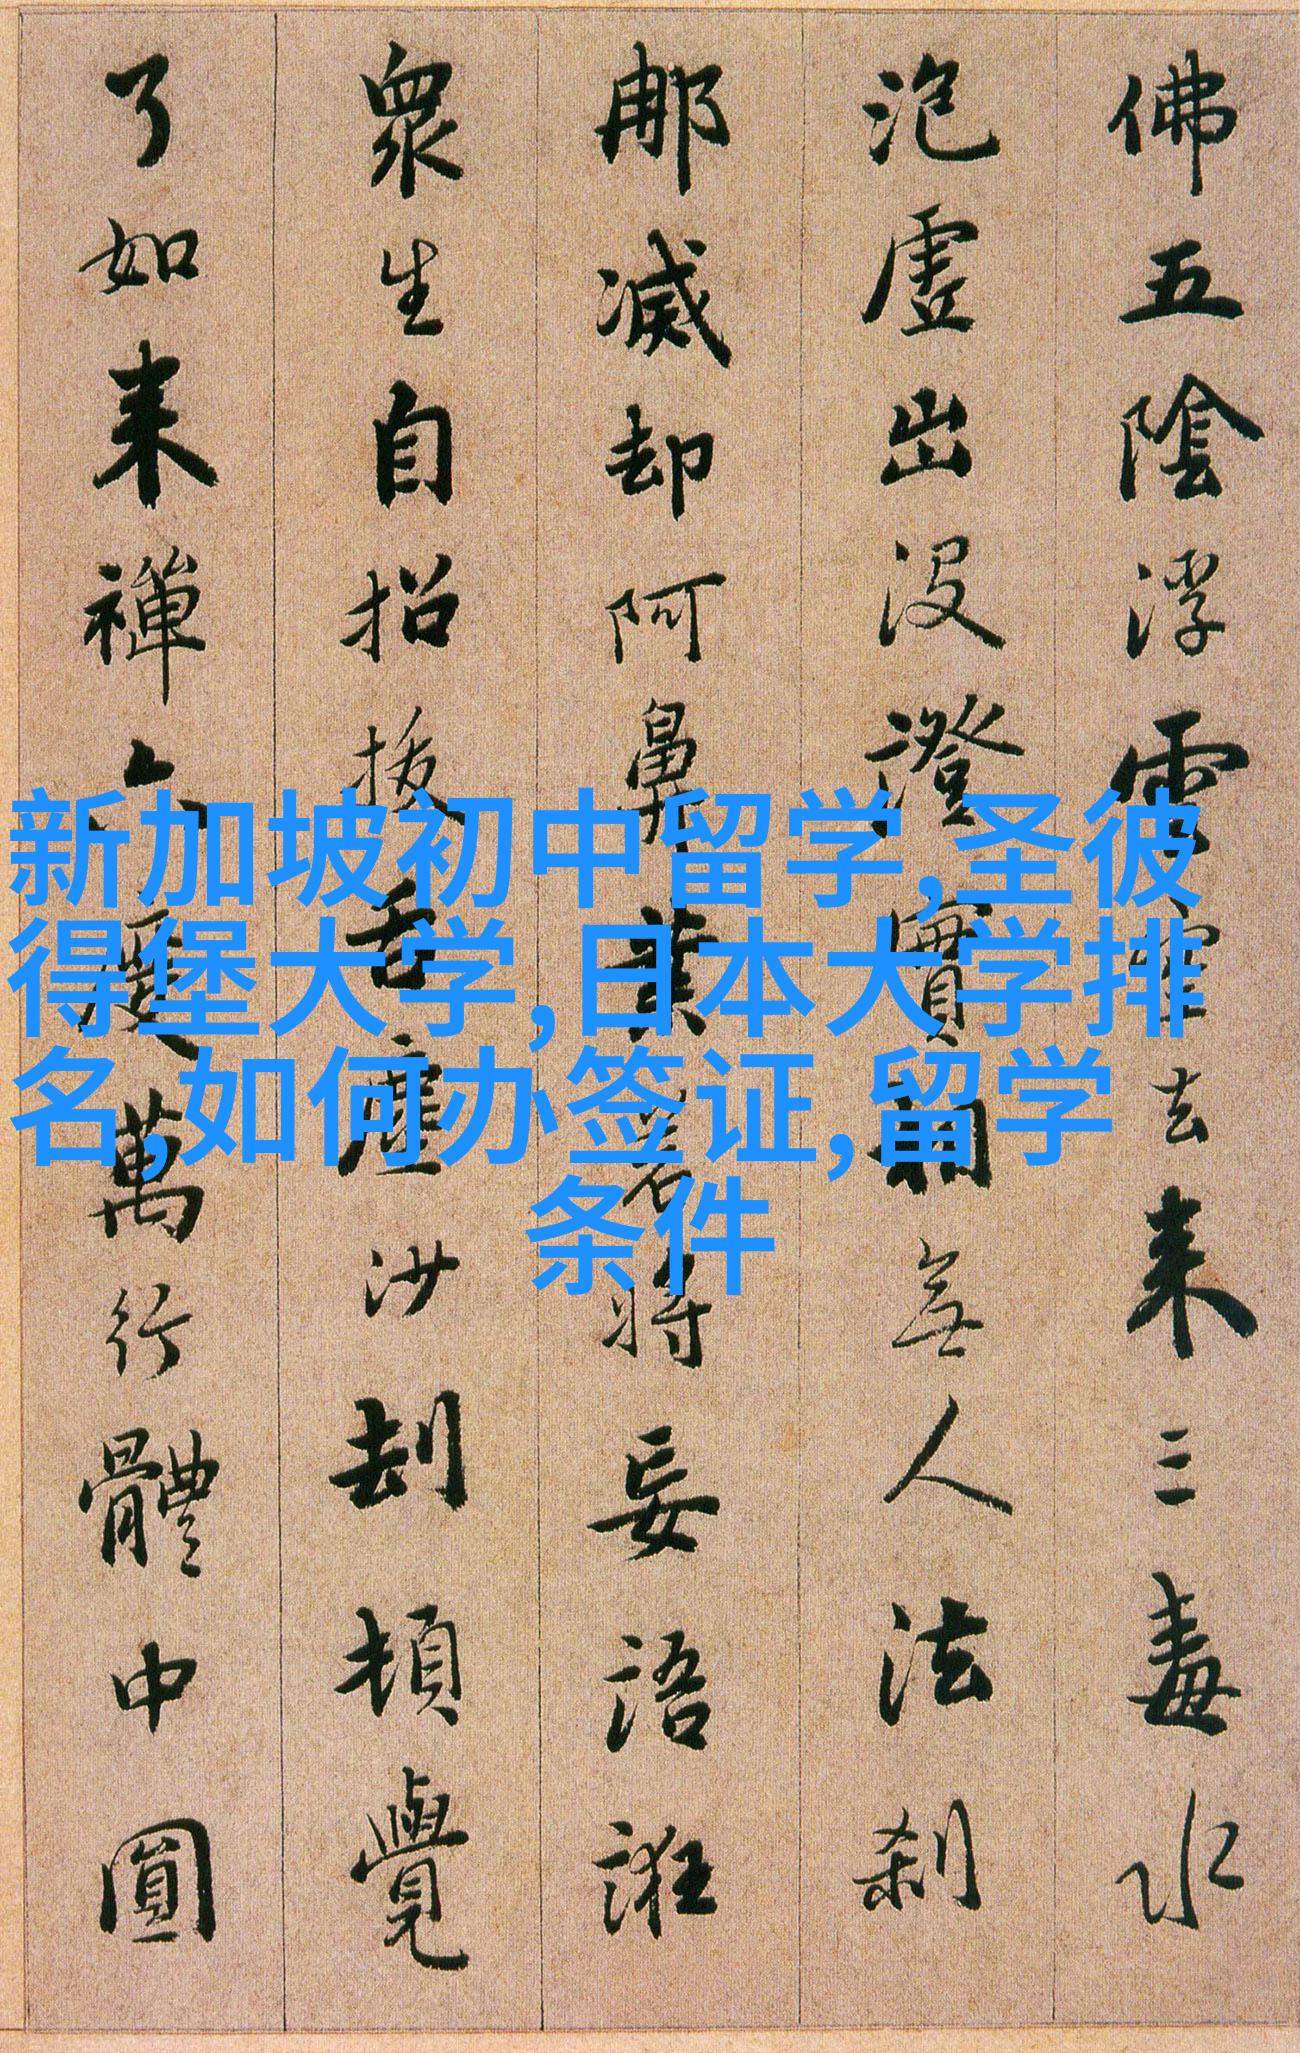 佛五陰浮雲空去來三毒水
泡虛出沒證實相無人法剎
那滅却阿鼻業若將妄語誑
眾生自招拔舌塵沙劫頓覺
了如來禪六度萬行體中圓
新加坡初中留学,圣彼
得堡大学,日本大学排
名,如何办签证,留学
条件